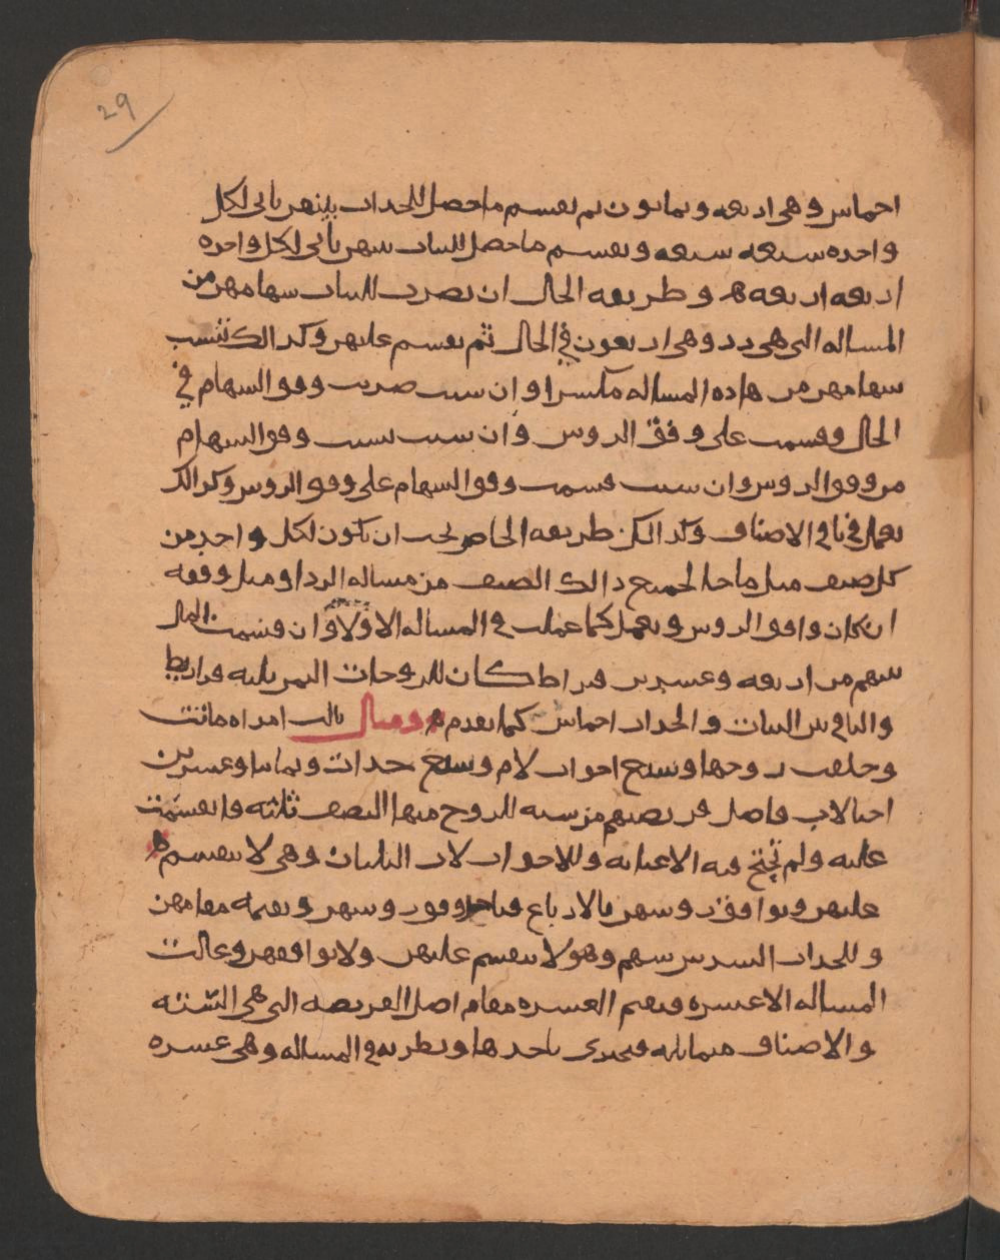 29
احماس وهي اربعه وثمانون ثم تقسم ما حصل للجدات بينهن ياتي لكل
واحده سبعه سبعه وتقسم ما حصل للبنات بينهن ياتي لكل واحده
اربعه اربعه ه وطريقه الحال ان تضرب للبنات سهامهن من
المساله التي هي وهي اربعون في الحال ثم تقسم عليهن وكذالك تنسب
سهامهن من هاذه المساله مكسرا وان شيت ضربت وفق السهام في
الحال وقسمت على وفق الروس وان شيت نسبت وفق السهام
من وفق الروس وان شيت قسمت وفق السهام على وفق الروس وكذالك
تعمل في باقي الاصناف وكذالك طريقه الخاص يجب ان يكون لكل واحد من
كل صنف مثل ما حا لجميع ذالك الصنف من مساله الرد او مثل وفقه
ان كان وافق الروس وتعمل كما عملت في المساله الاولا وان قسمت المال
سهم من اربعه وعشرين قيراط كان للزوجات الثمن ثلثه قراريط
والباقي بين البنات والجدات احماس كما تقدم ه ومثال ثالث امراه ماتت
وخلفت زوجها وسبع اخوات لام وسبع جدات وثمانيا وعشرين
اختا لاب فاصل فريضتهم من سته للزوج منها النصف ثلثه فانقسمت
عليه ولم تحتج فيه الا عنايه وللاخوات لاب الثلثان وهي لا تنقسم ه
عليهن وتوافق روسهن بالارباع فتاخذ وفق روسهن وتقيمه مقامهن
وللجدات السدس سهم وهو لا ينقسم عليهن ولا يوافقهن وعالت
المساله الا عشره فتقيم العشره مقام اصل الفريضه التي هي الستته
والاصناف متماثله فتجتزي باحدها وتضربه في المساله وهي عشره